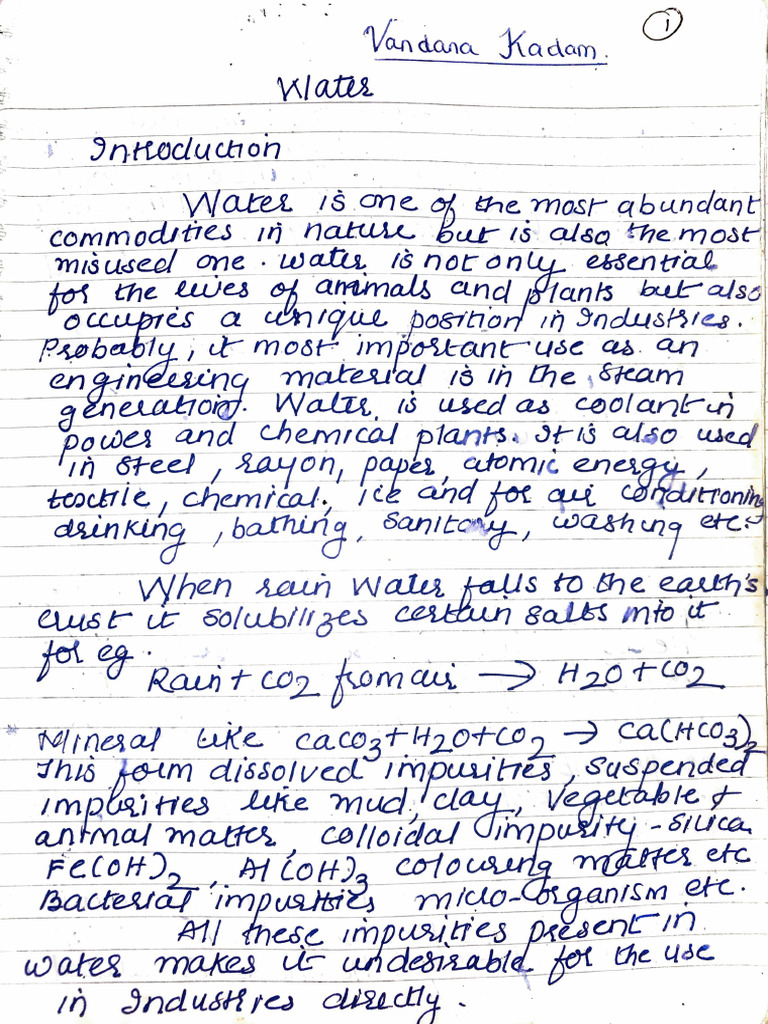 1
Vandana Kadam.
Water
Introduction
Water is one of the most abundant
commodities in nature but is also the most
misused one. water is not only essential
for the lives of animals and plants but also
occupies a unique position in Industries.
Probably, it most important use as an
engineering material is in the steam
generation. Water is used as coolant in
power and chemical plants. It is also used
in steel, rayon, paper, atomic energy,
textile, chemical, ice and for air conditioning
drinking, bathing, sanitary, washing etc.
When rain Water falls to the earth's
crust it solubilizes certain salts into it
for eg.
Rain + CO2 from air → H2O + CO2
Mineral like CaCO3 + H2O + CO2 → Ca(HCO3)2
This form dissolved impurities, suspended
impurities like mud, clay, vegetable &
animal matter, colloidal impurity - silica
Fe(OH)2, Al(OH)3 colouring matter etc
Bacterial impurities micro-organism etc.
All these impurities present in
water makes it undesirable for the use
in Industries directly.